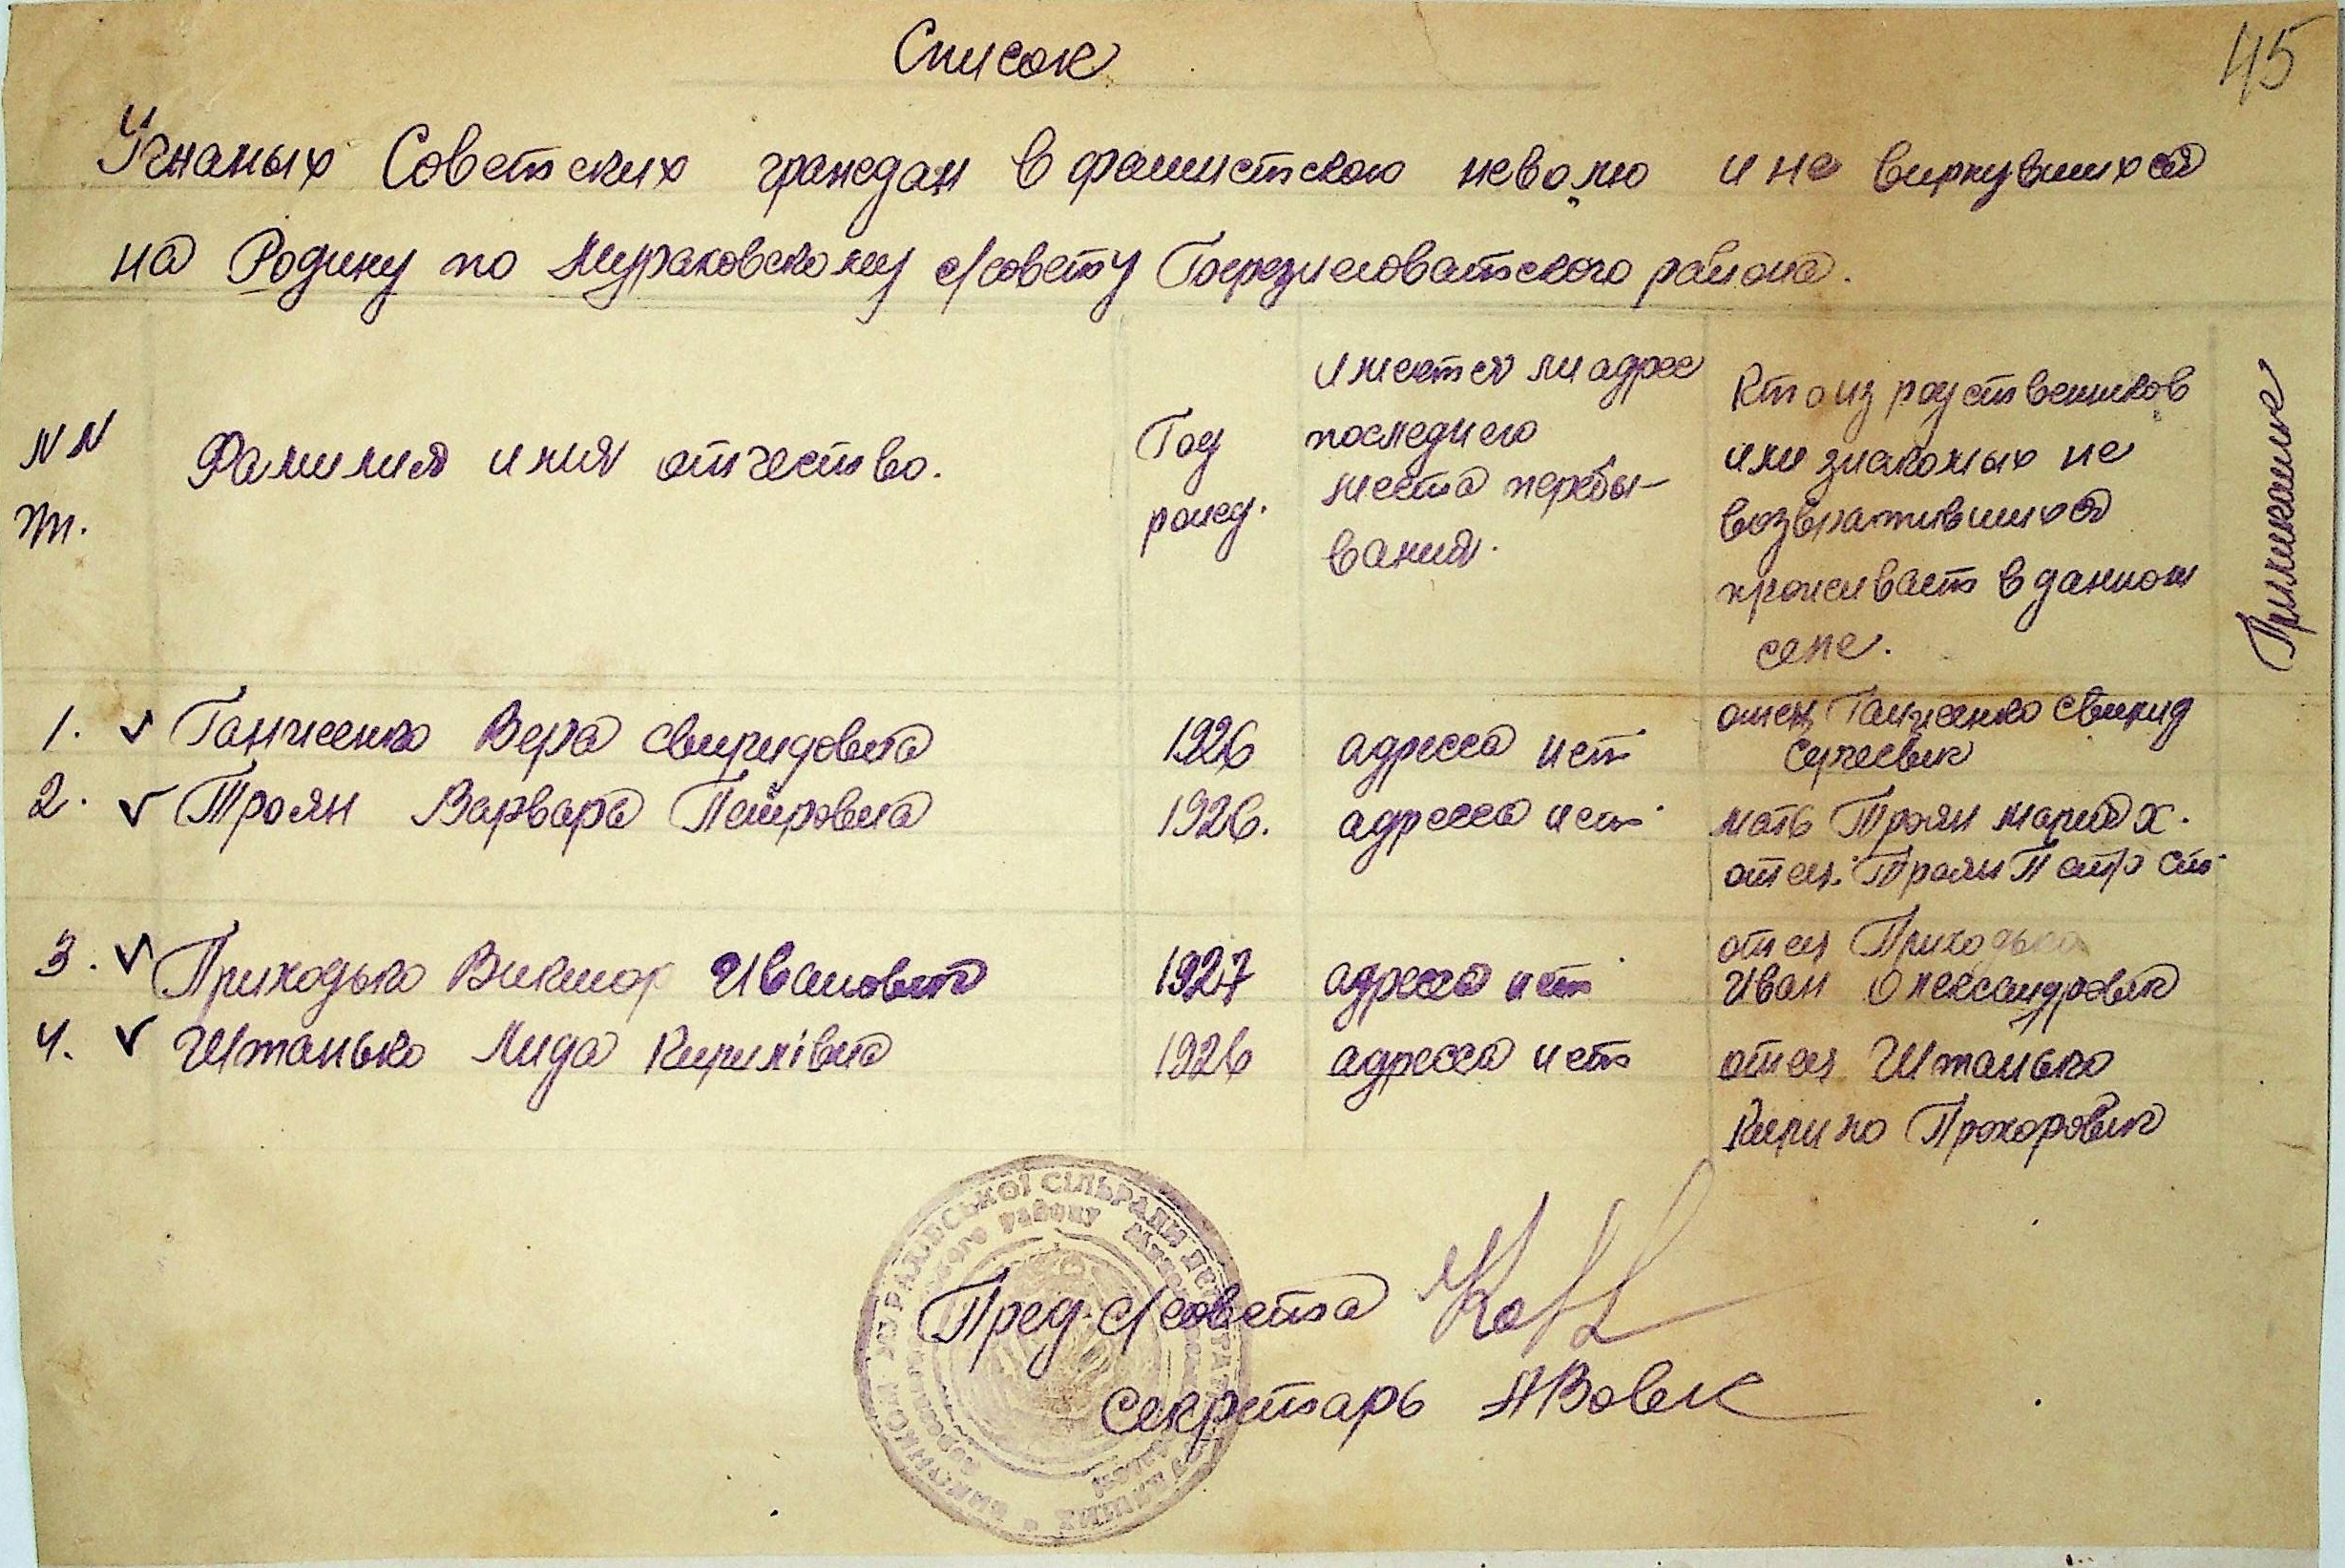 Список
45
Угнаных Советских граждан в фашистскою неволю и не вирнувшихся
на Родину по Мураховскому с/совету Березнеговатского района.
NN
пп.
Фамилия имия отчество.
Год
рожд.
имеется ли адрес
последнего
места перебы-
вания.
Кто из родственников
или знакомых не
возвратившихся
проживает в данном
селе.
Примичание
1. ✓ Ганженко Вера Свиридовна 1926 адресса нет отец Ганженко Свирид
Сергеевич
2. ✓ Троян Варвара Петровна 1926. адресса нет мать Троян Мария Х.
отец. Троян Петр Ст.
3. ✓ Приходько Виктор Иванович 1927 адресса нет отец Приходько
Иван Олександрович
4. ✓ Штанько Лида Кирилівна 1926 адресса нет отец Штанько
Кирило Прохорович
Пред. с/совета
Секретарь НВовк
МУРАХІВСЬКОЇ СІЛЬРАДИ ДЕПУТАТІВ ТРУДЯЩИХ
РАЙОНУ